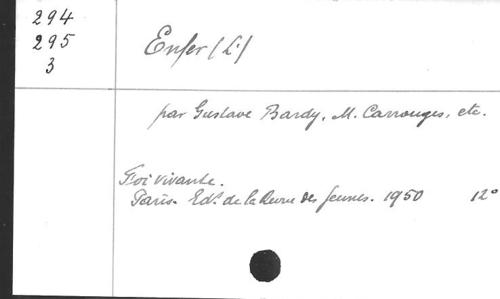 294
295
3
Enfer (L')
par Gustave Bardy, M. Carrouges, etc.
Foi vivante.
Paris. Edns de la Revue des Jeunes. 1950 12°